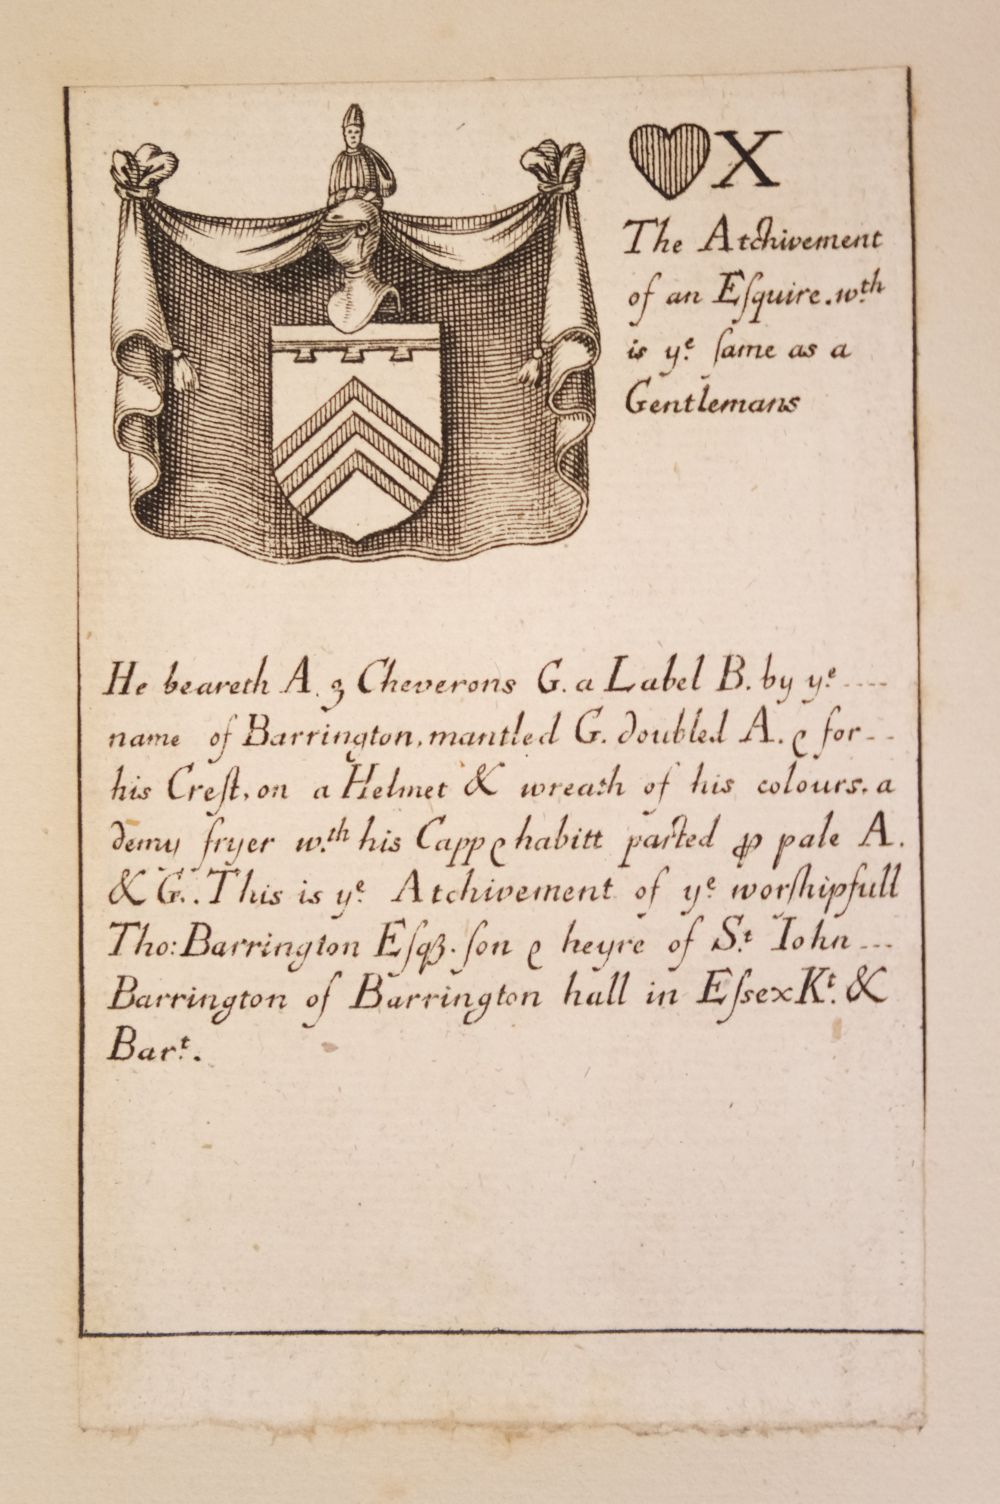 ♥X
The Atchivement
of an Esquire. wth
is ye same as a
Gentlemans
He beareth A. 3 Cheverons G. a Label B. by ye ----
name of Barrington, mantled G. doubled A. & for --
his Crest, on a Helmet & wreath of his colours, a
demy fryer w.th his Capp & habitt parted p pale A.
& G.. This is ye Atchivement of ye worshipfull
Tho: Barrington Esqz. son & heyre of St. Iohn ---
Barrington of Barrington hall in Essex Kt. &
Bart.